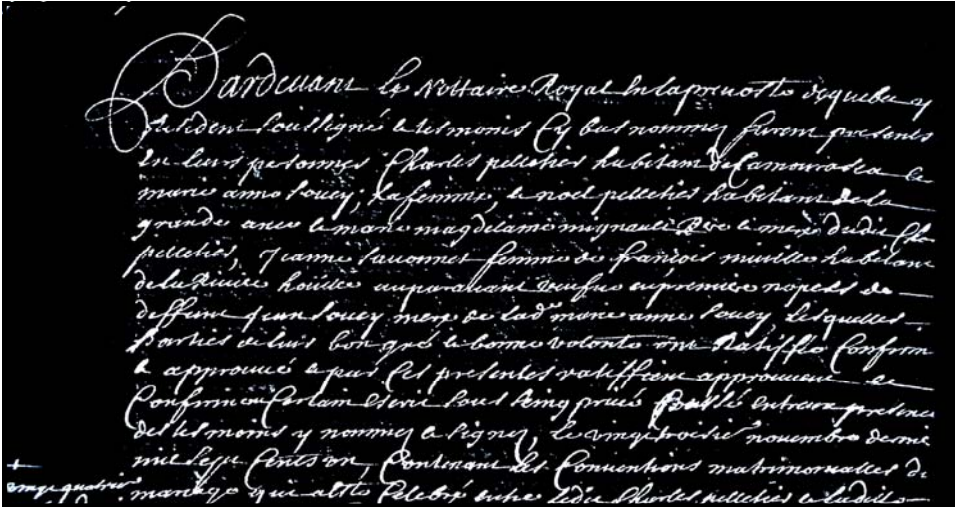 Pardevant le Nottaire Royal en la prevosté de quebec y
Resident soussigné et tesmoins cy bas nommez furent presents
en leurs personnes Charles pelletier habitant de Camouraska et
marie anne soucy, sa femme, et noel pelletier habitant de la
grande ance et marie magdelaine mignault Pere et mere dudit Cha
pelletier, Jeanne savonnet femme de françois miville habitant
de la Riviere houelle auparavant veufve en premiere nopces de
deffunt Jean soucy mere de lad marie anne soucy, Lesquelles
Parties de leurs bon gré et bonne volonté ont Ratiffié Confirm
et approuvé et par ces presentes ratiffient approuvent et
Confirment Certain escrit sous seing privé passé entreux presence
des tesmoins y nommez et signez, le vingt troisie novembre dernie
mil sept cents on Contenant les Conventions matrimonialles de
mariage qui a esté celebré entre ledit Charles pelletier et ladite
vingt quatrie